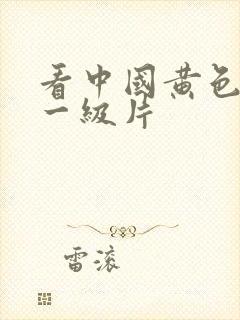 看中國黄色
一級片
雷滚